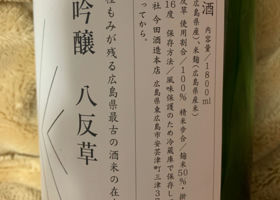 酒
内容量/1800ml
広島県産)、米麹(広島県産米)
草 使用割合/100% 精米歩合/麹米50%・掛
16度 保存方法/風味保護のため冷蔵庫で保存し
ってから。
社 今田酒造本店/広島県東広島市安芸津町三津3
吟醸 八反草
種もみが残る広島県最古の酒米の在